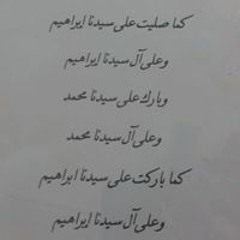 كما صليت على سيدنا إبراهيم
وعلى آل سيدنا إبراهيم
وبارك على سيدنا محمد
وعلى آل سيدنا محمد
كما باركت على سيدنا ابراهيم
وعلى آل سيدنا إبراهيم